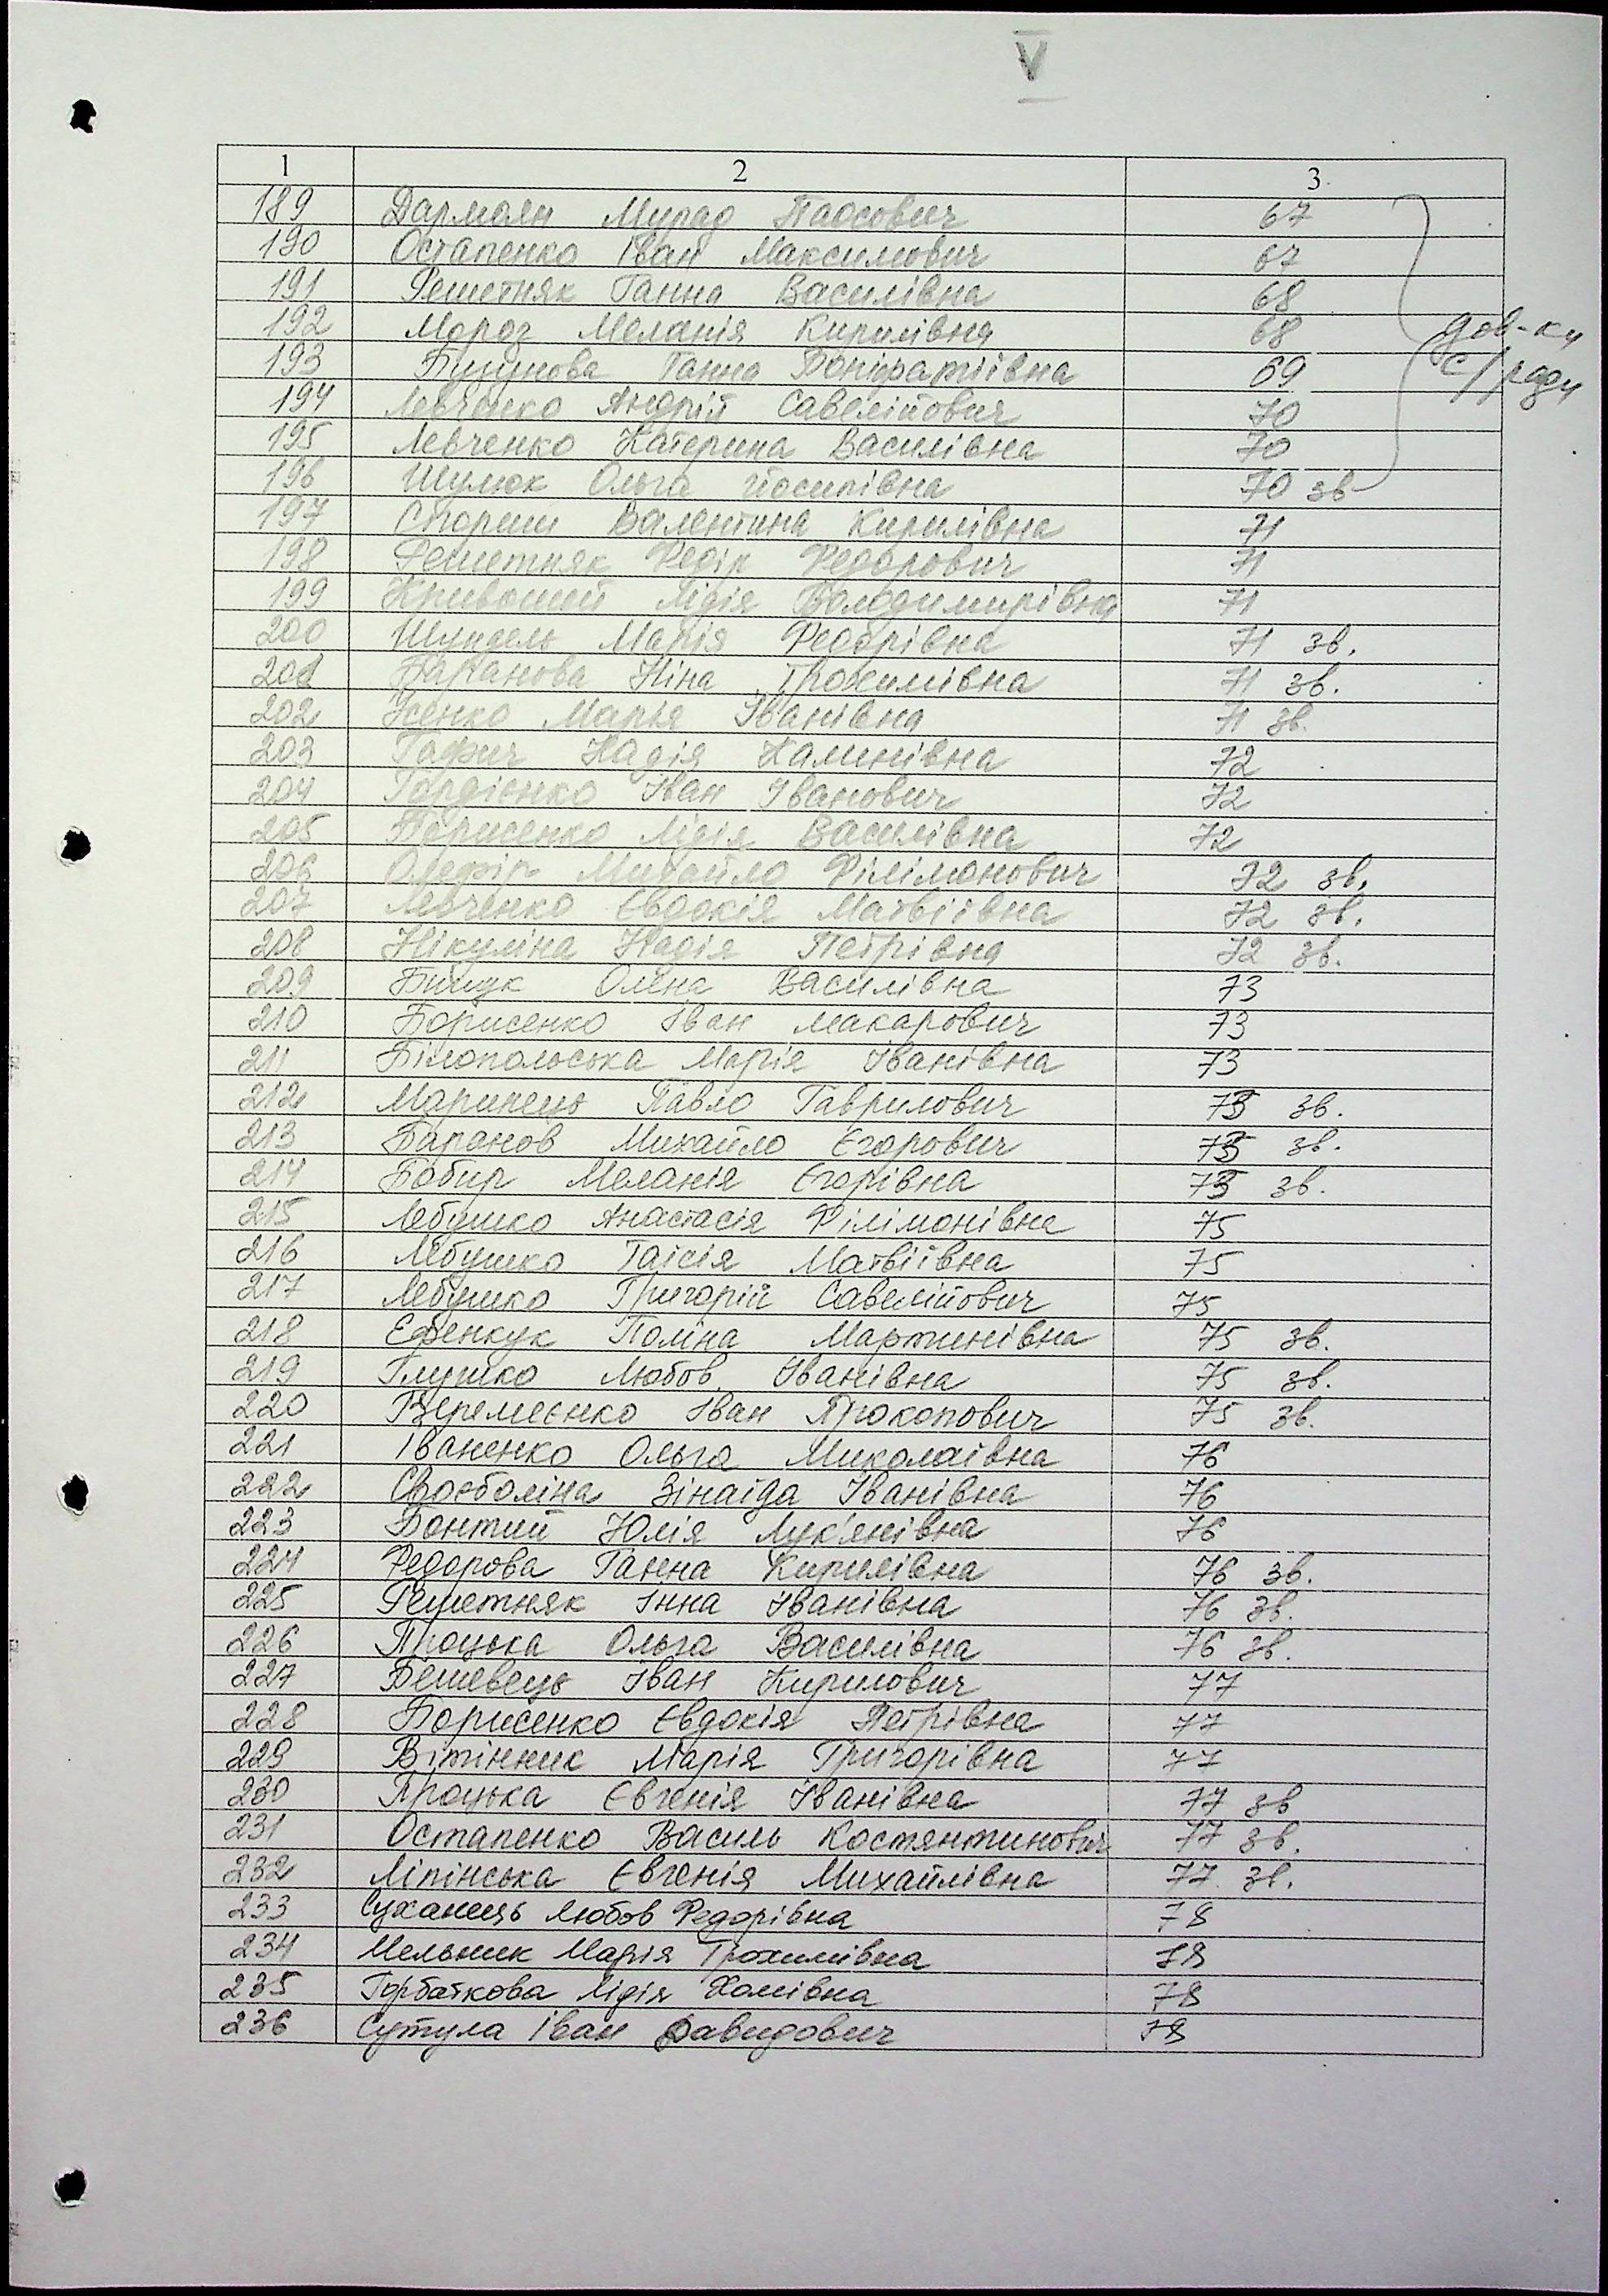 V
1 2 3
189 Дармоян Мурад Паосович 67
190 Остапенко Іван Максимович 67
191 Решетняк Ганна Василівна 68
192 Мороз Меланія Кирилівна 68 дов-ки
193 Бузунова Ганна Боніфатіївна 69 с/ради
194 Левченко Андрій Савелійович 70
195 Левченко Катерина Василівна 70
196 Шулюк Ольга Йосипівна 70 зв
197 Спориш Валентина Кирилівна 71
198 Решетняк Федір Федорович 71
199 Кривошей Лідія Володимирівна 71
200 Шундель Марія Федорівна 71 зв.
201 Баранова Ніна Трохимівна 71 зв.
202 Усенко Марія Іванівна 71 зв.
203 Гафич Надія Калинівна 72
204 Гордієнко Іван Іванович 72
205 Борисенко Лідія Василівна 72
206 Олефір Михайло Філімонович 72 зв.
207 Левченко Євдокія Матвіївна 72 зв.
208 Нікуліна Надія Петрівна 72 зв.
209 Олена Василівна 73
210 Борисенко Іван Макарович 73
211 Білопольська Марія Іванівна 73
212 Маринець Павло Гаврилович 73 зв.
213 Баранов Михайло Єгорович 73 зв.
214 Бобир Меланія Єгорівна 73 зв.
215 Лебушко Анастасія Філімонівна 75
216 Лебушко Таісія Матвіївна 75
217 Лебушко Григорій Савелійович 75
218 Ефенкук Поліна Мартинівна 75 зв.
219 Глушко Любов Іванівна 75 зв.
220 Веремеєнко Іван Прокопович 75 зв.
221 Іваненко Ольга Миколаївна 76
222 Своєболіна Зінаїда Іванівна 76
223 Бонтий Юлія Лук'янівна 76
224 Федорова Ганна Кирилівна 76 зв.
225 Решетняк Інна Іванівна 76 зв.
226 Процька Ольга Василівна 76 зв.
227 Бешевець Іван Кирилович 77
228 Борисенко Євдокія Петрівна 77
229 Вітінник Марія Григорівна 77
230 Процька Євгенія Іванівна 77 зв
231 Остапенко Василь Костянтинович 77 зв.
232 Ліпінська Євгенія Михайлівна 77 зв.
233 Суханець Любов Федорівна 78
234 Мельник Марія Трохимівна 78
235 Горбаткова Лідія Хомівна 78
236 Сутула Іван Давидович 78